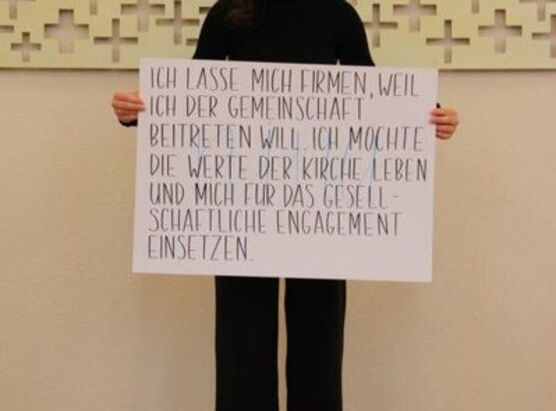 ICH LASSE MICH FIRMEN, WEIL
ICH DER GEMEINSCHAFT
BEITRETEN WILL. ICH MÖCHTE
DIE WERTE DER KIRCHE LEBEN
UND MICH FÜR DAS GESELL-
SCHAFTLICHE ENGAGEMENT
EINSETZEN.